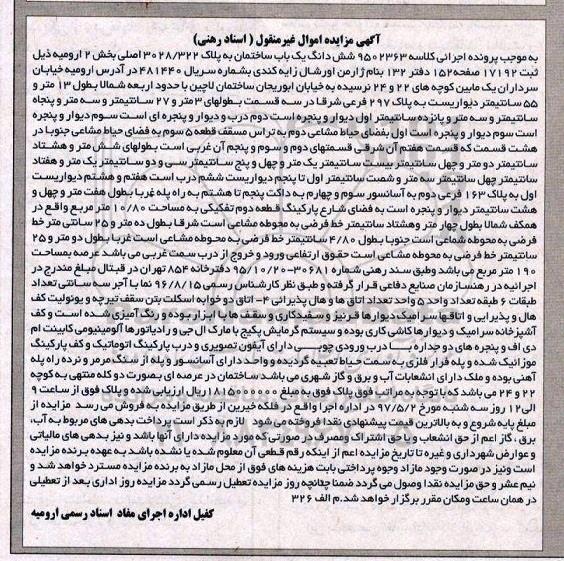 آگهی مزایده اموال غیرمنقول ( اسناد رهنی)
به موجب پرونده اجرائی کلاسه ۹۵۰۲۳۶۳ شش دانگ یک باب ساختمان به پلاک ۳۰۲۸/۳۲۲ اصلی بخش ۲ ارومیه ذیل
ثبت ۱۷۱۹۲ صفحه ۱۵۲ دفتر ۱۳۲ بنام ژارمن اورشال زایه کندی بشماره سریال ۴۸۱۴۴۰ در آدرس ارومیه خیابان
سرداران یک مابین کوچه های ۲۲ و ۲۴ نرسیده به خیابان ابوریحان ساختمان لاچین با حدود اربعه شمالا بطول ۱۳ متر و
۵۵ سانتیمتر دیواریست به پلاک ۲۹۷ فرعی شرقا در سه قسمت بطولهای ۳ متر و ۲۷ سانتیمتر و سه متر و پنجاه
سانتیمتر و سه متر و پانزده سانتیمتر اول دیوار و پنجره است دوم درب و دیوار و پنجره ای است سوم دیوار و پنجره
است سوم دیوار و پنجره است اول بفضای حیاط مشاعی دوم به تراس مسقف قطعه ۵ سوم به فضای حیاط مشاعی جنوبا در
هشت قسمت که قسمت هفتم آن شرقی قسمتهای دوم و سوم و پنجم آن غربی است بطولهای شش متر و هشتاد
سانتیمتر دو متر و چهل سانتیمتر بیست سانتیمتر یک متر و چهل و پنج سانتیمتر سی و دو سانتیمتر یک متر و هفتاد
سانتیمتر چهل سانتیمتر سه متر و شصت سانتیمتر اول تا پنجم دیواریست ششم درب است هفتم و هشتم دیواریست
اول به پلاک ۱۶۳ فرعی دوم به آسانسور سوم و چهارم به داکت پنجم تا هشتم به راه پله غربا بطول هفت متر و چهل و
هشت سانتیمتر دیوار و پنجره است به فضای شارع پارکینگ قطعه دوم تفکیکی به مساحت ۱۰/۸۰ متر مربع واقع در
همکف شمالا بطول چهار متر وهشتاد سانتیمتر خط فرضی به محوطه مشاعی است شرقا بطول ده متر و ۲۵ سانتی متر خط
فرضی به محوطه شماعی است جنوبا بطول ۴/۸۰ سانتیمتر خط فرضی به محوطه مشاعی است غربا بطول دو متر و ۲۵
سانتیمتر خط فرضی به محوطه مشاعی است حقوق ارتفاعی ورود و خروج از درب سمت غربی می باشد عرصه بمساحت
۱۹۰ متر مربع می باشد وطبق سند رهنی شماره ۳۰۶۸۱-۹۵/۱۰/۲۰ دفترخانه ۸۵۴ تهران در قبتال مبلغ مندرج در
اجرائیه در رهنسازمان صنایع دفاعی قرار گرفته و طبق نظر کارشناس رسمی ۹۶/۸/۱۵ نما با آجر سه سانتی تعداد
طبقات ۶ طبقه تعداد واحد ۵ واحد تعداد اتاق ها و هال پذیرائی ۴- اتاق دو خوابه اسکلت بتن سقف تیرچه و یونولیت کف
هال و پذیرایی و اتاقها سرامیک دیوارها قرنیز و سفیدکاری و سقف ها با ابزار بوده و رنگ آمیزی شده است و کف
آشپزخانه سرامیک و دیوارها کاشی کاری بوده و سیستم گرمایش پکیج با مارک ال جی و رادیاتورها آلومینیومی کابینت ام
دی اف و پنجره های دو جداره بـادرب ورودی چوبـی دارای آیفون تصویری و درب پارکینگ اتوماتیک و کف پارکینگ
موزائیک شده و پله فرار فلزی به سمت حیاط تعبیه گردیده و واحد دارای آسانسور و پله از سنگ مرمر و نرده راه پله
آهنی بوده و ملک دارای انشعابات آب و برق و گاز شهری می باشد ساختمان در عرصه ای بصورت دو کله منتهی به کوچه
۲۲ و ۲۴ می باشد که با توجه به مراتب فوق پلاک فوق به مبلغ ریال ارزیابی شده و پلاک فوق از ساعت ۹
الی ۱۲ روز سه شنبه مورخ ۹۷/۵/۲ در اداره اجرا واقع در فلکه خیرین از طریق مزایده به فروش می رسد مزایده از
مبلغ پایه شروع و به بالاترین قیمت پیشنهادی نقدا فروخته می شود لازم به ذکر است پرداخت بدهی های مربوط به آب،
برق ، گاز اعم از حق انشعاب و یا حق اشتراک و مصرف در صورتی که مورد مزایده دارای آنها باشد و نیز بدهی های مالیاتی
و عوارض شهرداری و غیره تا تاریخ مزایده اعم از اینکه رقم قطعی آن معلوم شده یا نشده باشد به عهده برنده مزایده
است ونیز در صورت وجود مازاد وجوه پرداختی بابت هزینه های فوق از محل مازاد به برنده مزایده مسترد خواهد شد و
نیم عشر و حق مزایده نقدا وصول می گردد ضمنا چنانچه روز مزایده تعطیل رسمی گردد مزایده روز اداری بعد از تعطیلی
در همان ساعت ومکان مقرر برگزار خواهد شد.م الف ۳۲۶
کفیل اداره اجرای مفاد اسناد رسمی ارومیه